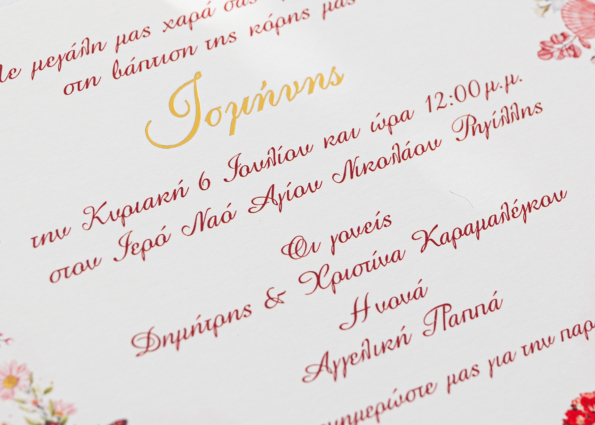 Με μεγάλη μας χαρά σας
στη βάπτιση της κόρης μας
Ισμήνης
την Κυριακή 6 Ιουλίου και ώρα 12:00μ.μ.
στον Ιερό Ναό Αγίου Νικολάου Ρηγίλλης
Οι γονείς
Δημήτρης & Χριστίνα Καραμαλέγκου
Η νονά
Αγγελική Παππά
ενημερώστε μας για την παρ